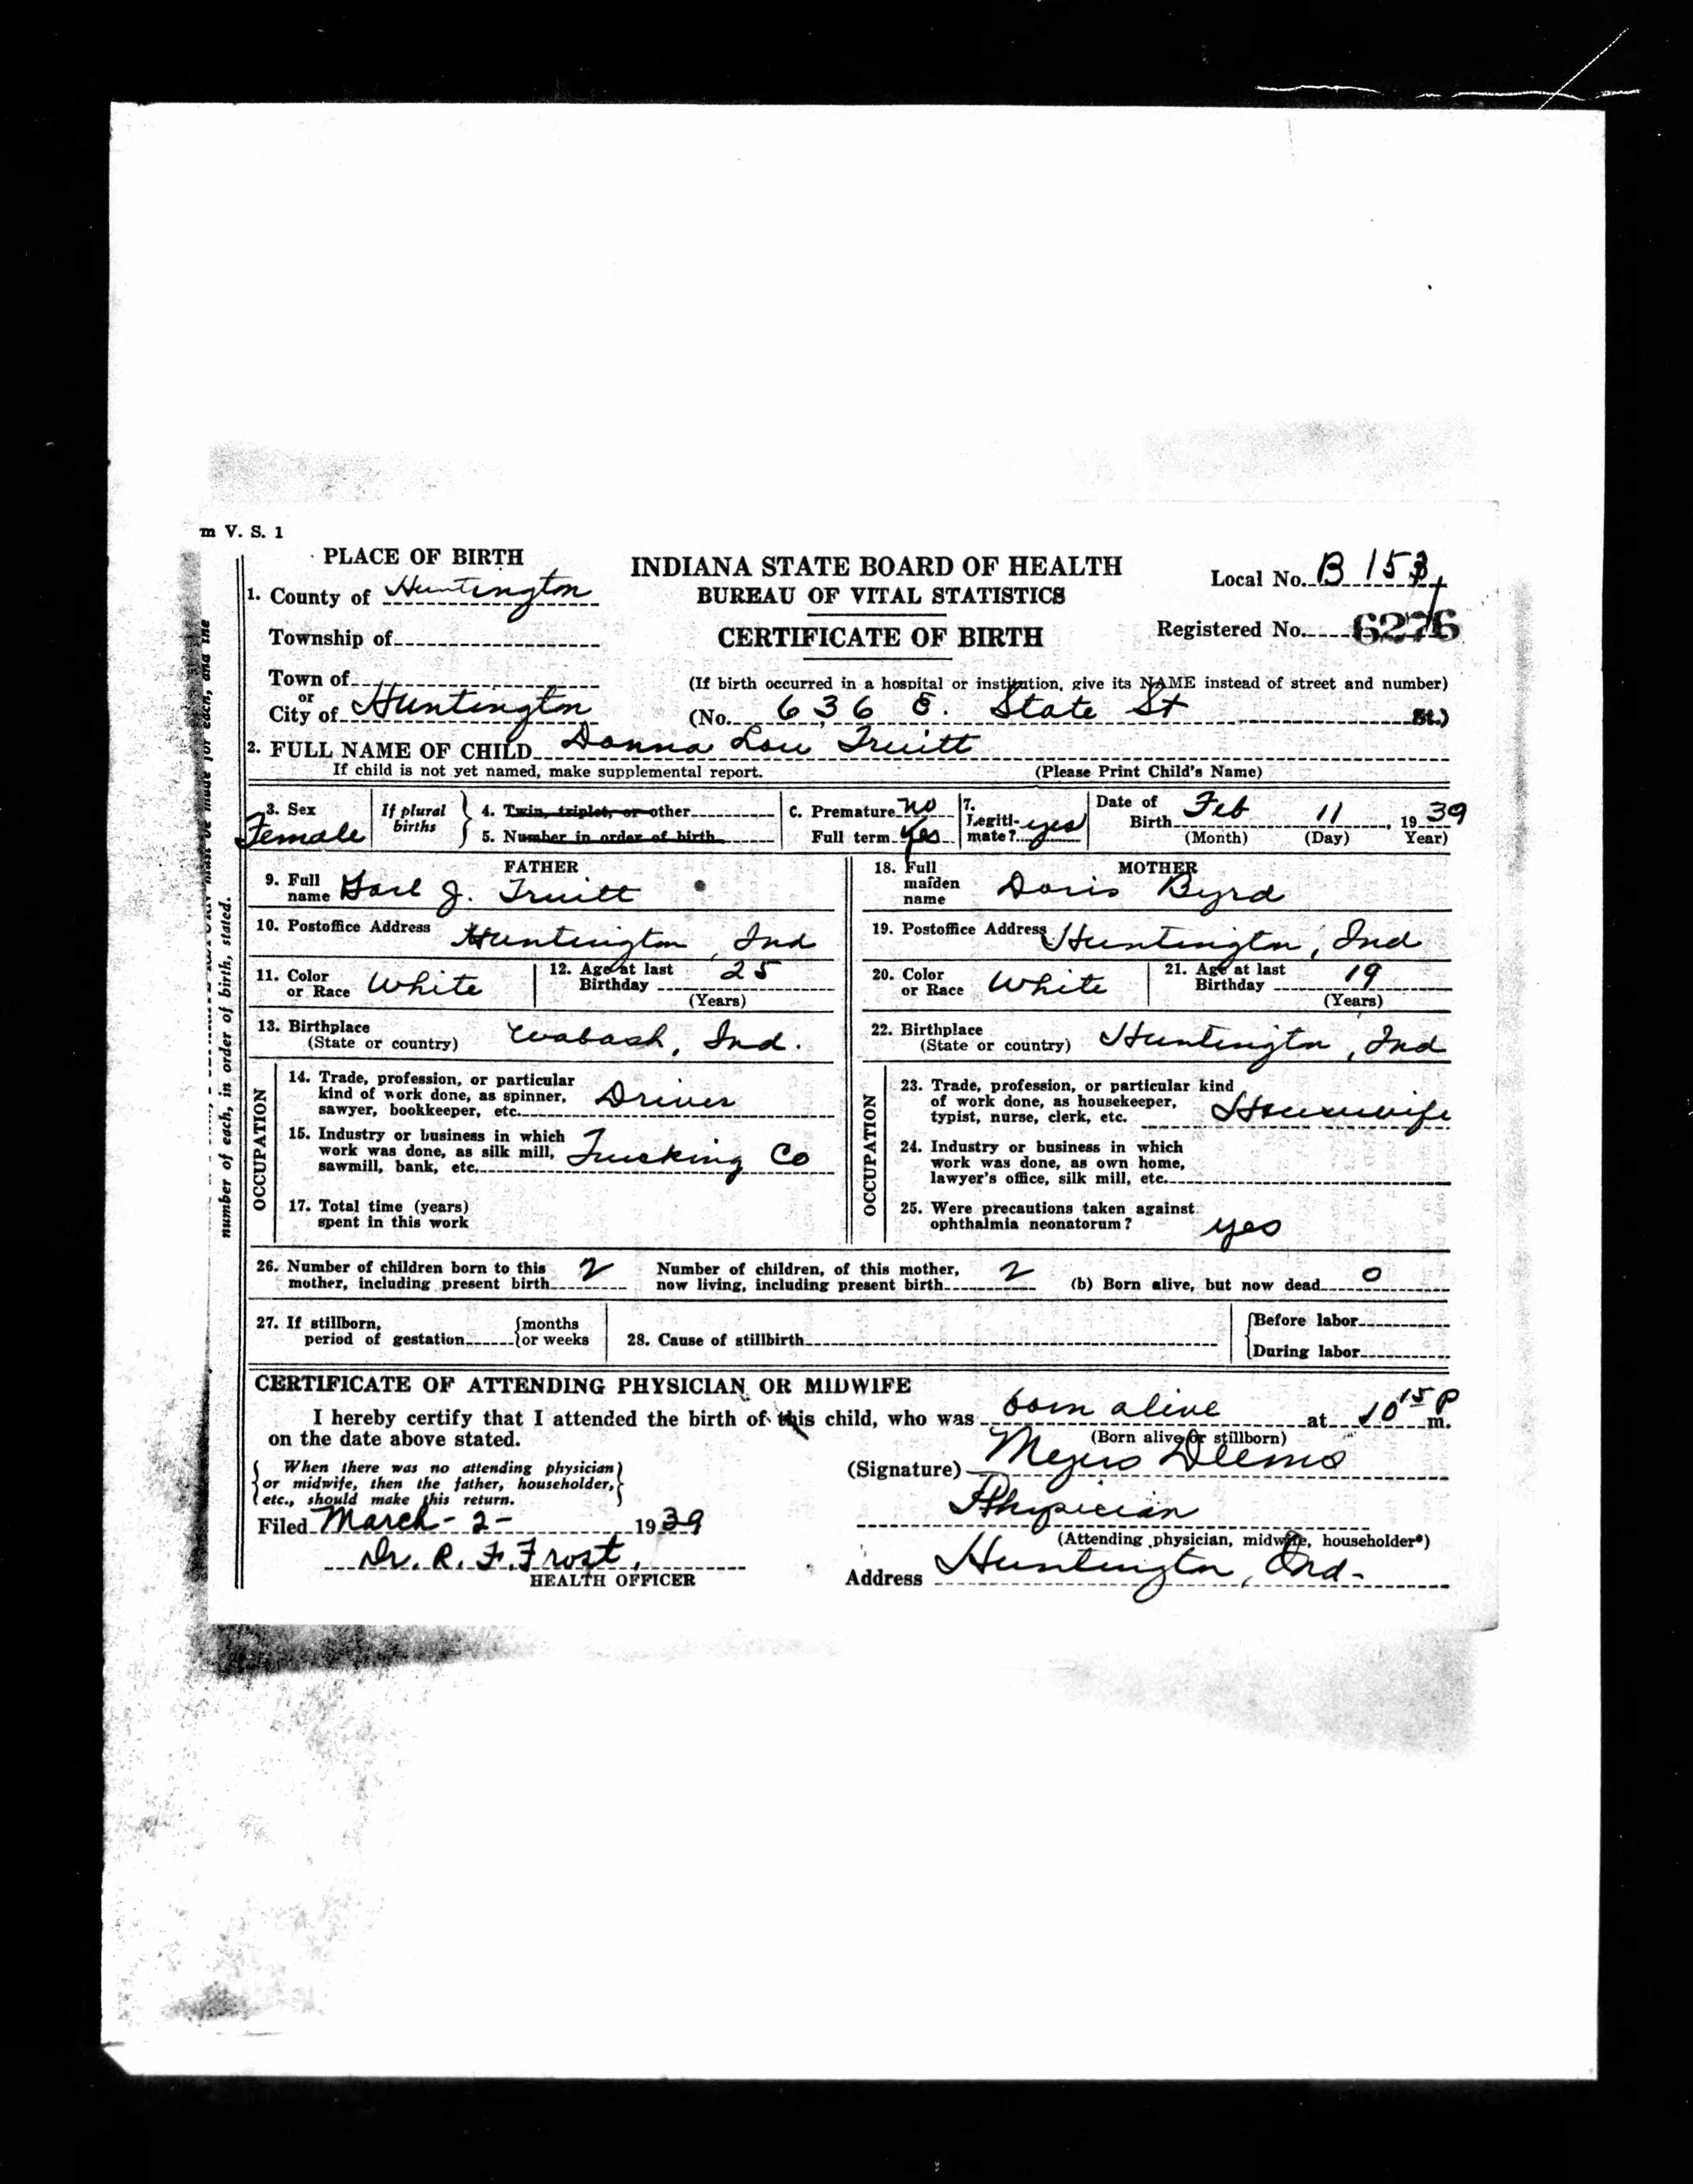 m V. S. 1
PLACE OF BIRTH
INDIANA STATE BOARD OF HEALTH
BUREAU OF VITAL STATISTICS
CERTIFICATE OF BIRTH
Local No. B 153
Registered No. 6276
1. County of Huntington
Township of
Town of
or
City of Huntington
(If birth occurred in a hospital or institution, give its NAME instead of street and number)
(No. 636 E. State St St.)
2. FULL NAME OF CHILD Donna Lou Truitt
If child is not yet named, make supplemental report. (Please Print Child's Name)
3. Sex Female
If plural births
4. Twin, triplet, or other
5. Number in order of birth
C. Premature No
Full term Yes
7. Legitimate? yes
Date of Birth Feb 11, 1939
(Month) (Day) Year)
FATHER
9. Full name J. Truitt
10. Postoffice Address Huntington, Ind
11. Color or Race White
12. Age at last Birthday 25
(Years)
13. Birthplace Wabash, Ind.
(State or country)
OCCUPATION
14. Trade, profession, or particular
kind of work done, as spinner,
sawyer, bookkeeper, etc. Driver
15. Industry or business in which
work was done, as silk mill,
sawmill, bank, etc. Trucking Co
17. Total time (years)
spent in this work
MOTHER
18. Full maiden name Doris Byrd
19. Postoffice Address Huntington, Ind
20. Color or Race White
21. Age at last Birthday 19
(Years)
22. Birthplace Huntington, Ind
(State or country)
OCCUPATION
23. Trade, profession, or particular kind
of work done, as housekeeper,
typist, nurse, clerk, etc. Housewife
24. Industry or business in which
work was done, as own home,
lawyer's office, silk mill, etc.
25. Were precautions taken against
ophthalmia neonatorum? yes
26. Number of children born to this
mother, including present birth 2
Number of children, of this mother,
now living, including present birth 2
(b) Born alive, but now dead 0
27. If stillborn,
period of gestation {months
{or weeks
28. Cause of stillbirth
{Before labor
{During labor
CERTIFICATE OF ATTENDING PHYSICIAN OR MIDWIFE
I hereby certify that I attended the birth of this child, who was born alive at 10 15 P m.
on the date above stated. (Born alive or stillborn)
{When there was no attending physician}
{or midwife, then the father, householder,}
{etc., should make this return.}
(Signature) Deems
Physician
(Attending physician, midwife, householder*)
Filed March - 2 - 1939
Dr. R. F. Frost,
HEALTH OFFICER
Address Huntington, Ind.
must be made for each, and the
number of each, in order of birth, stated.